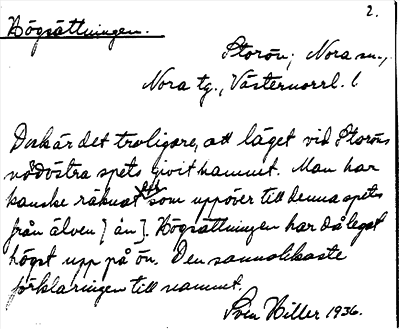 2.
Högsättningen.
Storön, Nora sn.,
Nora tg., Västernorrl. l
Dock är det troligare, att läget vid Storöns
nordvästra spets givit namnet. Man har
kanske räknat det som uppöver till denna spets
från älven [ån]. Högsättningen har då legat
högst upp på ön. Den sannolikaste
förklaringen till namnet.
Sven Hiller 1936.